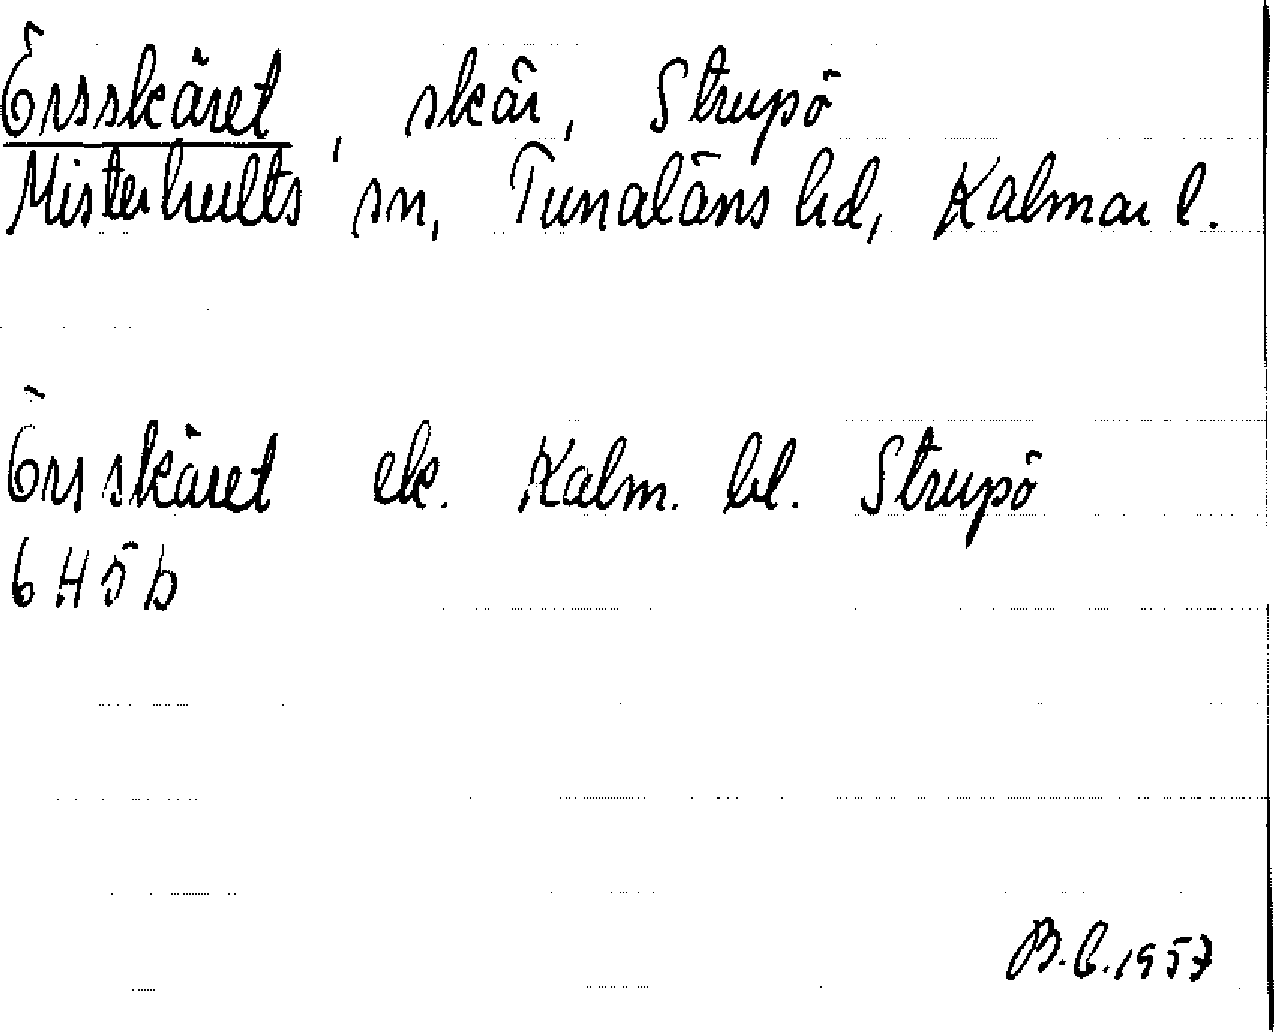 Örsskäret, skär, Strupö
Misterhults sn, Tunaläns hd, Kalmar l.
Örsskäret ek. Kalm. bl. Strupö
6 H 5 b
B.C. 1957